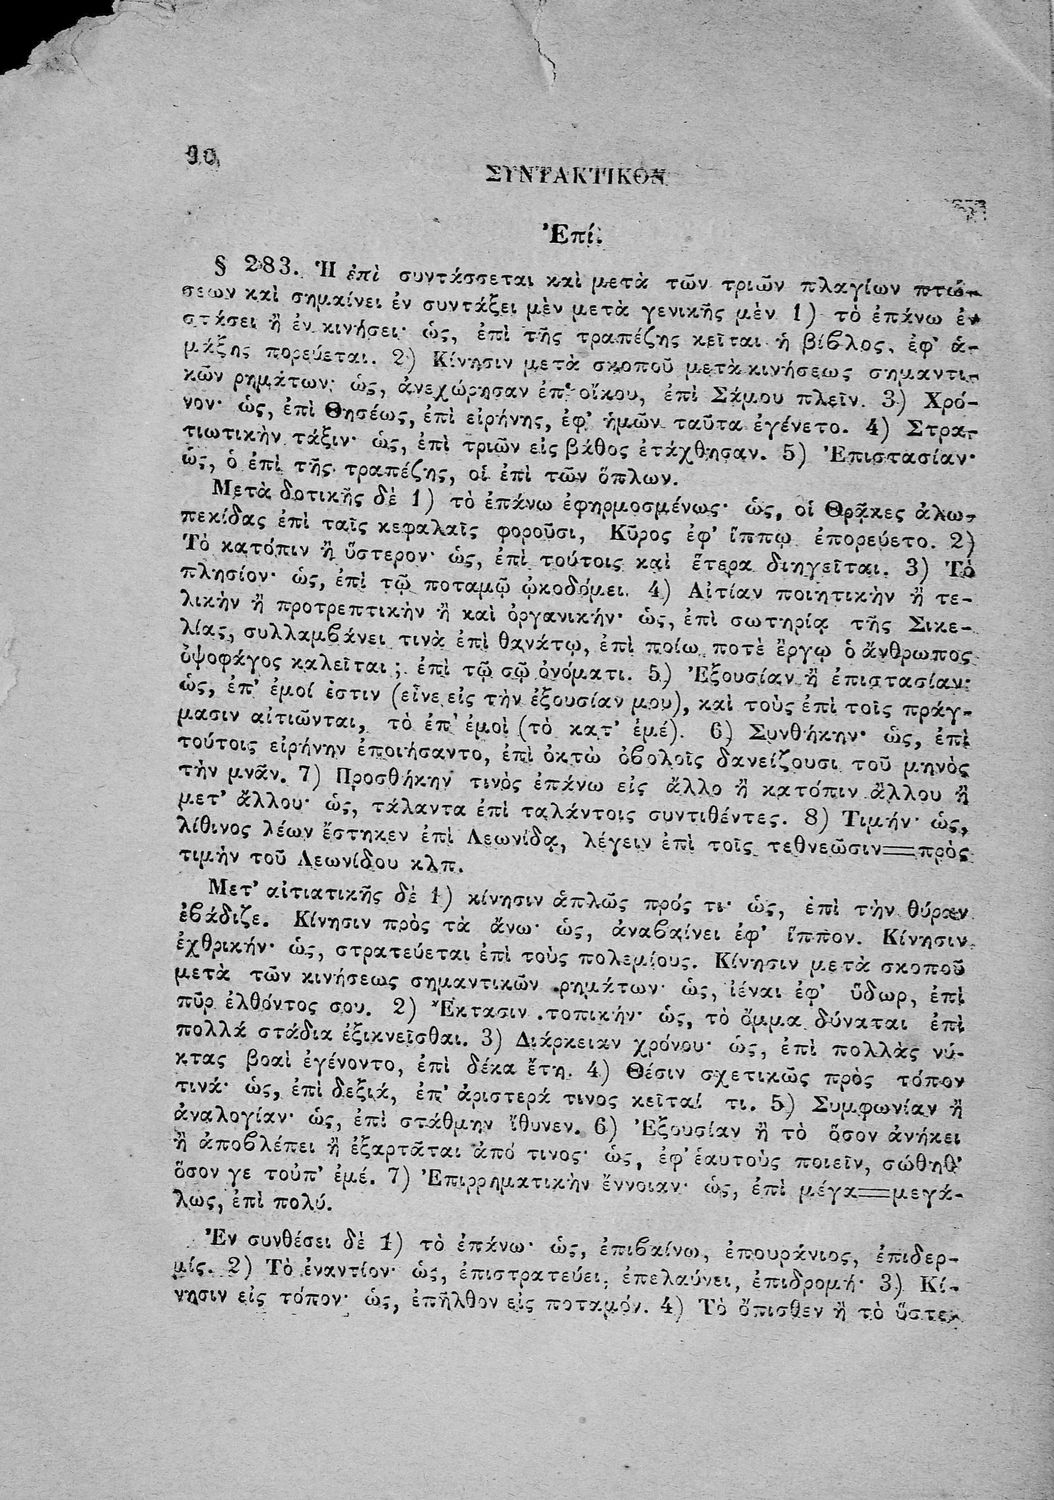 90
ΣΥΝΤΑΚΤΙΚΟΝ
Ἐπί.
§ 283. Ἡ ἐπὶ συντάσσεται καὶ μετὰ τῶν τριῶν πλαγίων πτώ-
σεων καὶ σημαίνει ἐν συντάξει μὲν μετὰ γενικῆς μὲν 1) τὸ ἐπάνω ἐν
στάσει ἢ ἐν κινήσει· ὡς, ἐπὶ τῆς τραπέζης κεῖται ἡ βίβλος, ἐφ’ ἁ-
μάξης πορεύεται. 2) Κίνησιν μετὰ σκοποῦ μετὰ κινήσεως σημαντι-
κῶν ῥημάτων· ὡς, ἀνεχώρησαν ἐπ’ οἴκου, ἐπὶ Σάμου πλεῖν. 3) Χρό-
νον· ὡς, ἐπὶ Θησέως, ἐπὶ εἰρήνης, ἐφ’ ἡμῶν ταῦτα ἐγένετο. 4) Στρα-
τιωτικὴν τάξιν· ὡς, ἐπὶ τριῶν εἰς βάθος ἐτάχθησαν. 5) Ἐπιστασίαν·
ὡς, ὁ ἐπὶ τῆς τραπέζης, οἱ ἐπὶ τῶν ὅπλων.
Μετὰ δοτικῆς δὲ 1) τὸ ἐπάνω ἐφηρμοσμένως· ὡς, οἱ Θρᾷκες ἀλω-
πεκίδας ἐπὶ ταῖς κεφαλαῖς φοροῦσι, Κῦρος ἐφ’ ἵππῳ ἐπορεύετο. 2)
Τὸ κατόπιν ἢ ὕστερον· ὡς, ἐπὶ τούτοις καὶ ἕτερα διηγεῖται. 3) Τὸ
πλησίον· ὡς, ἐπὶ τῷ ποταμῷ ᾠκοδόμει. 4) Αἰτίαν ποιητικὴν ἢ τε-
λικὴν ἢ προτρεπτικὴν ἢ καὶ ὀργανικήν· ὡς, ἐπὶ σωτηρίᾳ τῆς Σικε-
λίας, συλλαμβάνει τινὰ ἐπὶ θανάτῳ, ἐπὶ ποίῳ ποτὲ ἔργῳ ὁ ἄνθρωπος
ὀψοφάγος καλεῖται; ἐπὶ τῷ σῷ ὀνόματι. 5) Ἐξουσίαν ἢ ἐπιστασίαν·
ὡς, ἐπ’ ἐμοί ἐστιν (εἶνε εἰς τὴν ἐξουσίαν μου), καὶ τοὺς ἐπὶ τοῖς πράγ-
μασιν αἰτιῶνται, τὸ ἐπ’ ἐμοὶ (τὸ κατ’ ἐμέ). 6) Συνθήκην· ὡς, ἐπὶ
τούτοις εἰρήνην ἐποιήσαντο, ἐπὶ ὀκτὼ ὀβολοῖς δανείζουσι τοῦ μηνὸς
τὴν μνᾶν. 7) Προσθήκην τινὸς ἐπάνω εἰς ἄλλο ἢ κατόπιν ἄλλου ἢ
μετ’ ἄλλου· ὡς, τάλαντα ἐπὶ ταλάντοις συντιθέντες. 8) Τιμήν· ὡς,
λίθινος λέων ἕστηκεν ἐπὶ Λεωνίδᾳ, λέγειν ἐπὶ τοῖς τεθνεῶσιν=πρὸς
τιμὴν τοῦ Λεωνίδου κλπ.
Μετ’ αἰτιατικῆς δὲ 1) κίνησιν ἁπλῶς πρός τι· ὡς, ἐπὶ τὴν θύραν
ἐβάδιζε. Κίνησιν πρὸς τὰ ἄνω· ὡς, ἀναβαίνει ἐφ’ ἵππον. Κίνησιν
ἐχθρικήν· ὡς, στρατεύεται ἐπὶ τοὺς πολεμίους. Κίνησιν μετὰ σκοποῦ
μετὰ τῶν κινήσεως σημαντικῶν ῥημάτων· ὡς, ἰέναι ἐφ’ ὕδωρ, ἐπὶ
πῦρ ἐλθόντος σου. 2) Ἔκτασιν τοπικήν· ὡς, τὸ ὄμμα δύναται ἐπὶ
πολλὰ στάδια ἐξικνεῖσθαι. 3) Διάρκειαν χρόνου· ὡς, ἐπὶ πολλὰς νύ-
κτας βοαὶ ἐγένοντο, ἐπὶ δέκα ἔτη. 4) Θέσιν σχετικῶς πρὸς τόπον
τινά· ὡς, ἐπὶ δεξιά, ἐπ’ ἀριστερά τινος κεῖταί τι. 5) Συμφωνίαν ἢ
ἀναλογίαν· ὡς, ἐπὶ στάθμην ἴθυνεν. 6) Ἐξουσίαν ἢ τὸ ὅσον ἀνήκει
ἢ ἀποβλέπει ἢ ἐξαρτᾶται ἀπό τινος· ὡς, ἐφ’ ἑαυτοὺς ποιεῖν, σώθηθ’
ὅσον γε τοὐπ’ ἐμέ. 7) Ἐπιρρηματικὴν ἔννοιαν· ὡς, ἐπὶ μέγα=μεγά-
λως, ἐπὶ πολύ.
Ἐν συνθέσει δὲ 1) τὸ ἐπάνω· ὡς, ἐπιβαίνω, ἐπουράνιος, ἐπιδερ-
μίς. 2) Τὸ ἐναντίον· ὡς, ἐπιστρατεύει, ἐπελαύνει, ἐπιδρομή· 3) Κί-
νησιν εἰς τόπον· ὡς, ἐπῆλθον εἰς ποταμόν. 4) Τὸ ὄπισθεν ἢ τὸ ὕστε-